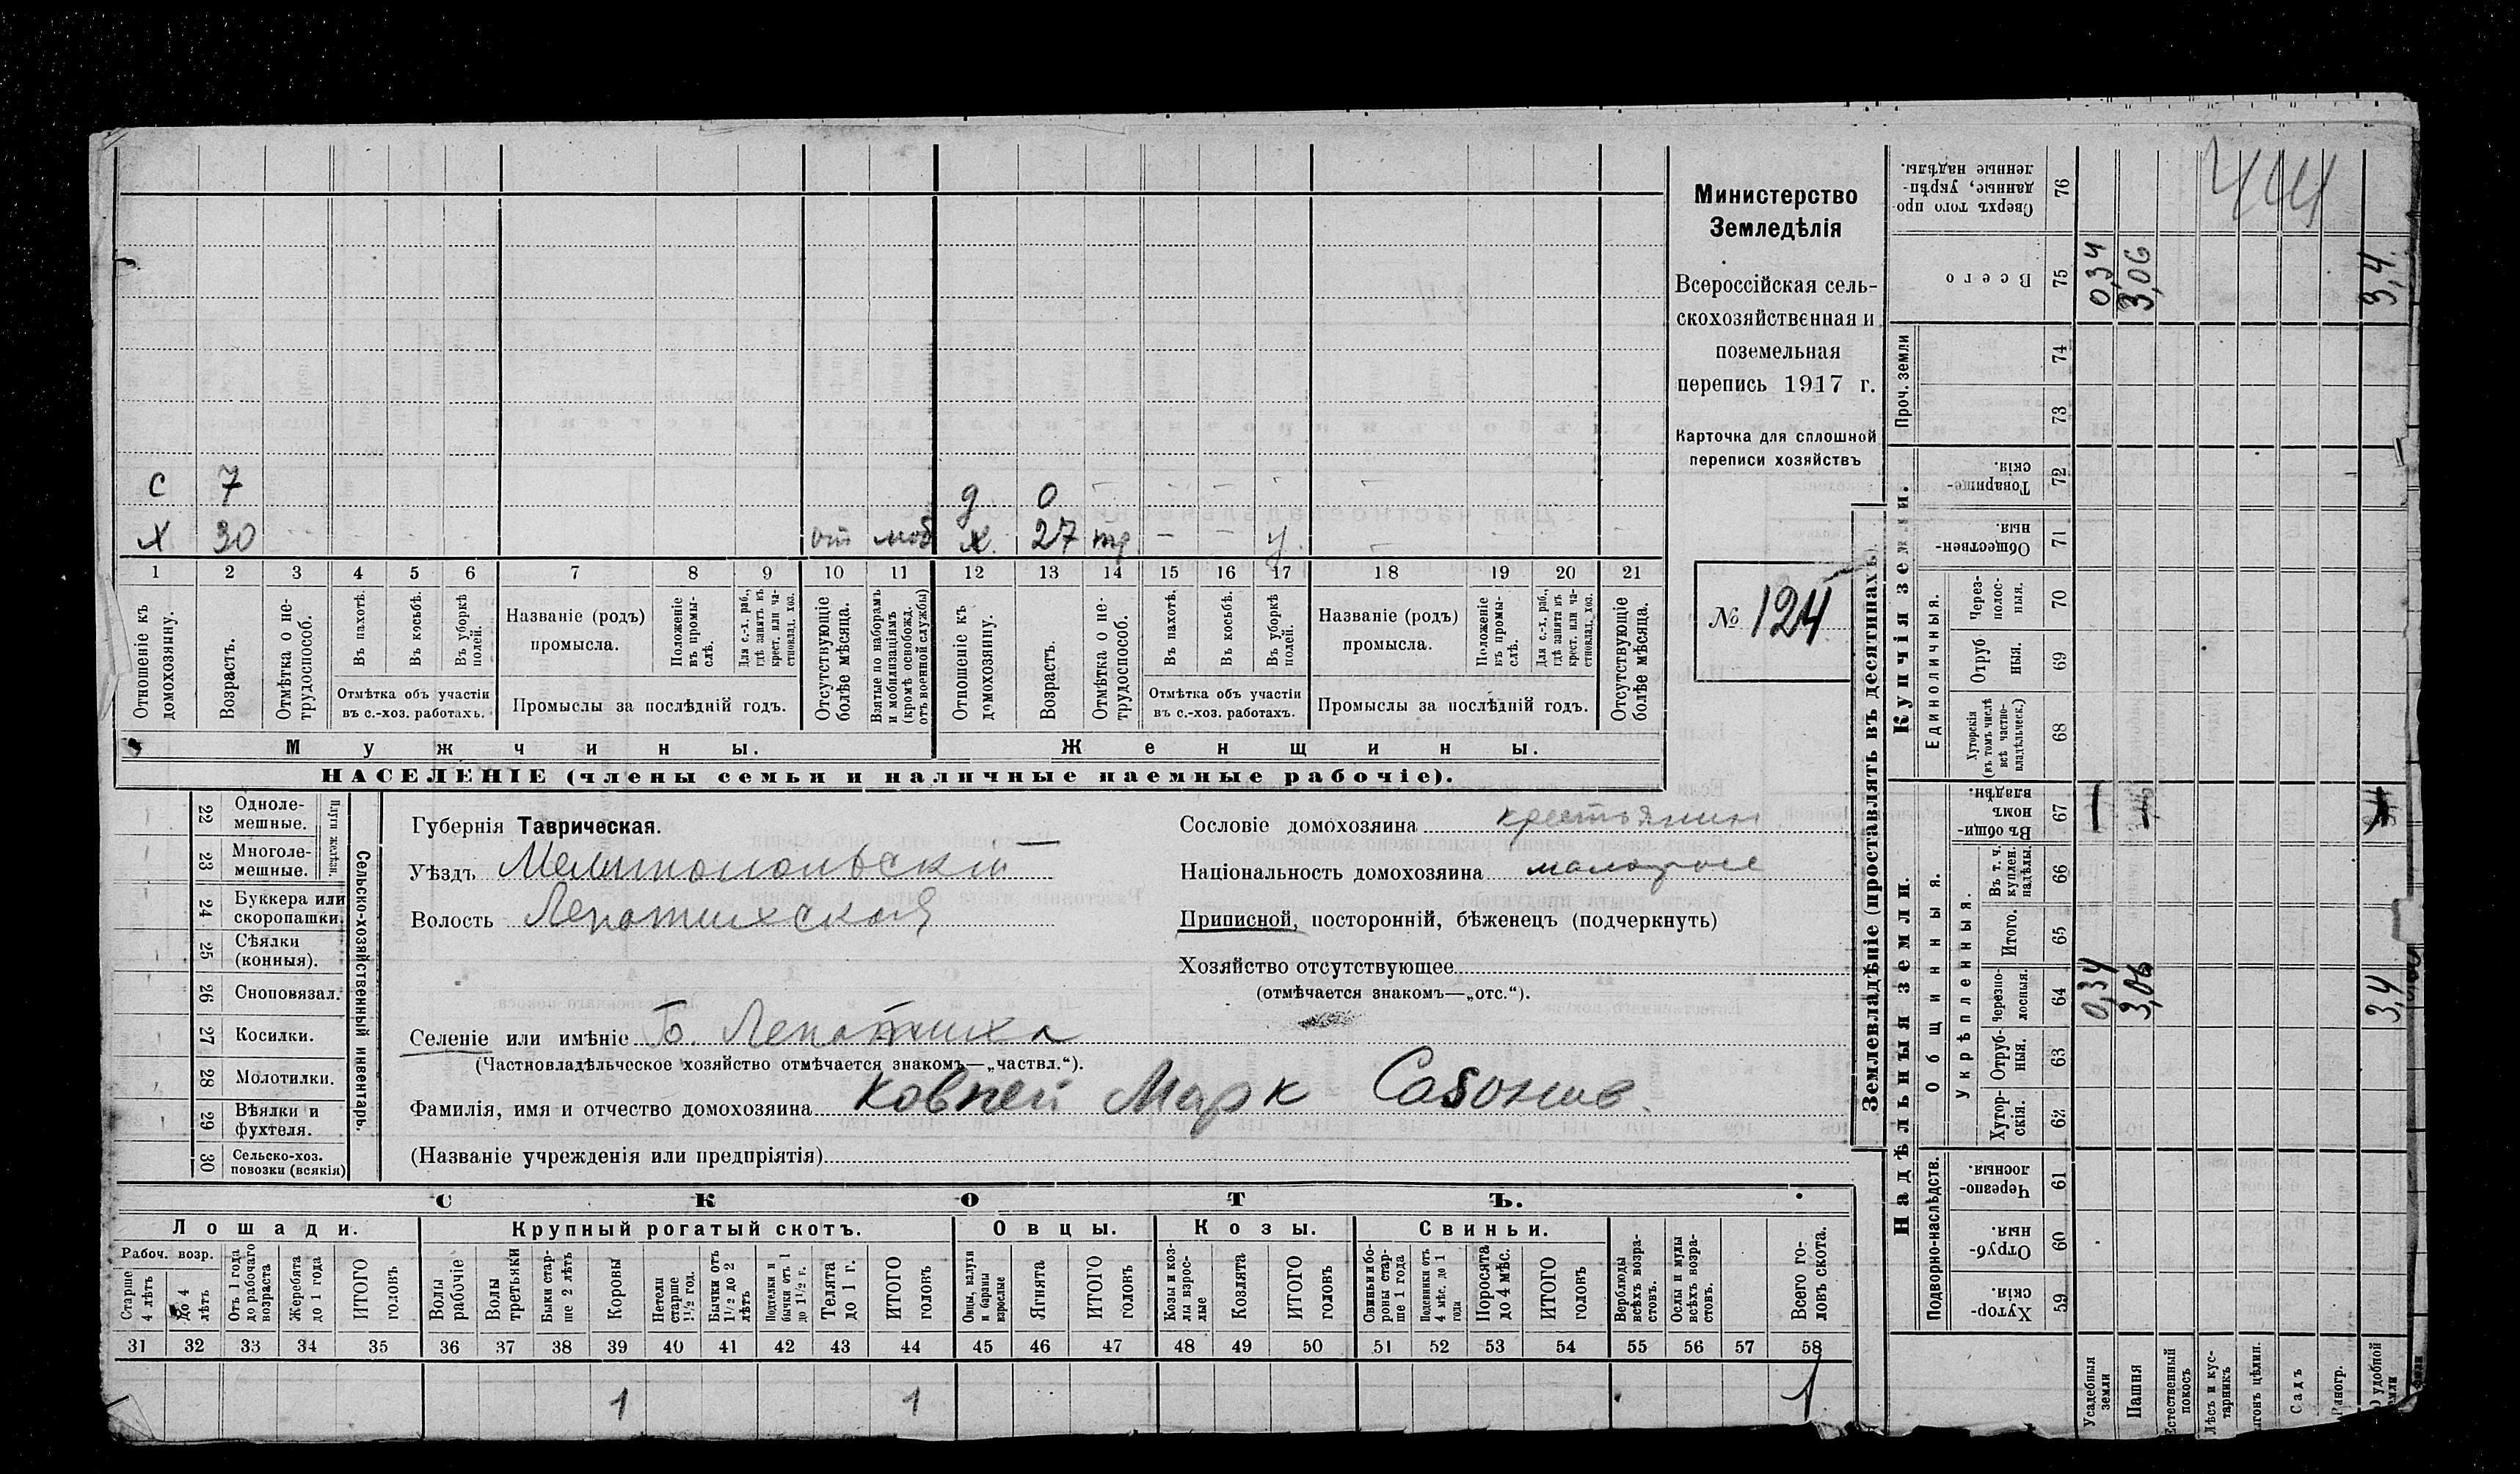 Министерство
Земледѣлія
Всероссійская сель-
скохозяйственная и
поземельная
перепись 1917 г.
Карточка для сплошной
переписи хозяйствъ
№ 124
с 7 д 0
х 30 от моб х 27 тр — — у —
1 2 3 4 5 6 7 8 9 10 11 12 13 14 15 16 17 18 19 20 21
Отношеніе къ домохозяину.
Возрастъ.
Отмѣтка о не-трудоспособ.
Въ пахотѣ.
Въ косьбѣ.
Въ уборкѣ полей.
Отмѣтка объ участіи
въ с.-хоз. работахъ.
Названіе (родъ)
промысла.
Положеніе въ промы-слѣ.
Для с.-х. раб., гдѣ занятъ въ крест. или ча-стновлад. хоз.
Промыслы за послѣдній годъ.
Отсутствующіе болѣе мѣсяца.
Взятые по наборамъ и мобилизаціямъ (кромѣ освобожд. отъ военной службы)
Отношеніе къ домохозяину.
Возрастъ.
Отмѣтка о не-трудоспособ.
Въ пахотѣ.
Въ косьбѣ.
Въ уборкѣ полей.
Отмѣтка объ участіи
въ с.-хоз. работахъ.
Названіе (родъ)
промысла.
Положеніе въ промы-слѣ.
Для с.-х. раб., гдѣ занята въ крест. или ча-стновлад. хоз.
Промыслы за послѣдній годъ.
Отсутствующіе болѣе мѣсяца.
Мужчины. Женщины.
НАСЕЛЕНІЕ (члены семьи и наличные наемные рабочіе).
22 Одноле-мешные.
23 Многоле-мешные.
Плуги желѣзн.
24 Буккера или скоропашки.
25 Сѣялки (конныя).
26 Сноповязал.
27 Косилки.
28 Молотилки.
29 Вѣялки и фухтеля.
30 Сельско-хоз. повозки (всякія)
Сельско-хозяйственный инвентарь.
Губернія Таврическая.
Уѣздъ Мелитопольскій
Волость Лепатихская
Сословіе домохозяина крестьянин
Національность домохозяина малоросс
Приписной, посторонній, бѣженецъ (подчеркнуть)
Хозяйство отсутствующее
(отмѣчается знакомъ—„отс.“).
Селеніе или имѣніе Б. Лепатиха
(Частновладѣльческое хозяйство отмѣчается знакомъ—„частвл.“).
Фамилія, имя и отчество домохозяина Ковпей Марк Созонив.
(Названіе учрежденія или предпріятія)
СКОТЪ.
Лошади. Крупный рогатый скотъ. Овцы. Козы. Свиньи.
Рабоч. возр.
Старше 4 лѣтъ
До 4 лѣтъ
Отъ 1 года до рабочаго возраста
Жеребята до 1 года
ИТОГО головъ
Волы рабочіе
Волы третьяки
Быки стар-ше 2 лѣтъ
Коровы
Нетели старше 1½ год.
Бычки отъ 1½ до 2 лѣтъ
Подтелки и бычки отъ 1 до 1½ г.
Телята до 1 г.
ИТОГО головъ
Овцы, валухи и бараны взрослые
Ягнята
ИТОГО головъ
Козы и коз-лы взрос-лые
Козлята
ИТОГО головъ
Свиньи и бо-ровы стар-ше 1 года
Подсвинки отъ 4 мѣс. до 1 года
Поросята до 4 мѣс.
ИТОГО головъ
Верблюды всѣхъ возра-стовъ.
Ослы и мулы всѣхъ возра-стовъ.
Всего го-ловъ скота.
31 32 33 34 35 36 37 38 39 40 41 42 43 44 45 46 47 48 49 50 51 52 53 54 55 56 57 58
1 1 1
Землевладѣніе (проставлять въ десятинахъ).
Надѣльныя земли. Купчія земли.
Подворно-наслѣдств.
Общинныя.
Укрѣпленныя.
Единоличныя.
Проч. земли
Хутор-скія. 59
Отруб-ныя. 60
Черезпо-лосныя. 61
Хутор-скія. 62
Отруб-ныя. 63
Черезпо-лосныя. 64
Итого. 65
Въ т. ч. куплен. надѣлы. 66
Въ общин-номъ владѣн. 67
Хуторскія (въ томъ числѣ всѣ частно-владѣльческ.) 68
Отруб ныя. 69
Через-полос-ныя. 70
Обществен-ныя 71
Товарище-скія. 72
73
74
Всего 75
Сверхъ того про-данные, укрѣп-ленные надѣлы. 76
Усадебныя земли 0,34 0,34
Пашня 3,06 3,06
Естественный покосъ
Лѣсъ и кус-тарникъ
цѣлин.
Садъ
удобной 3,4 3,4